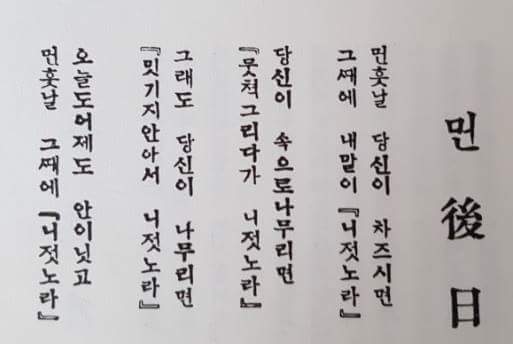 먼 後 日
먼훗날 당신이 차즈시면
그ᄯᅢ에 내말이 『니젓노라』
당신이 속으로나무리면
『뭇쳑그리다가 니젓노라』
그래도 당신이 나무리면
『밋기지안아서 니젓노라』
오늘도어제도 안이닛고
먼훗날 그ᄯᅢ에 『니젓노라』